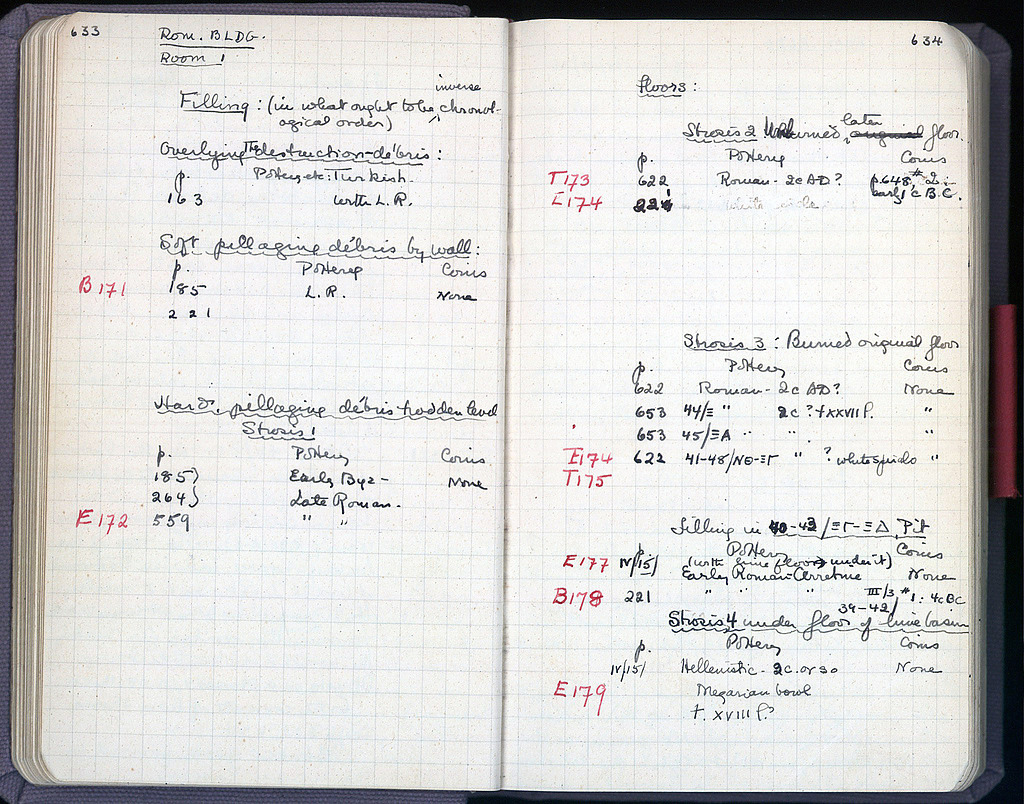 633
Rom. BLDG.
Room 1
inverse
Filling: (in what ought to be chronol-
ogical order)
Overlying destruction-débris:
p. Pottery etc: Turkish.
163 with L.R.
Soft pillaging débris by wall:
p. Pottery Coins
B171 185 L.R. None
221
Hard, pillaging débris-trodden level
Strosis 1
p. Pottery Coins
185) Early Byz- None
264) Late Roman.
E172 559 " "
634
floors:
later
Strosis 2 Unburned, original floor.
p. Pottery Coins
T173 622 Roman- 2c AD? p.648, #2:
E174 221 white early 1c B.C.
Strosis 3: Burned original floor
p. Pottery Coins
622 Roman- 2c AD? None
653 44/Ξ " 2c ? + XXVII f. "
653 45/ΞA " " "
E174 622 41-48/ΝΘ-ΞΓ " ? white "
T175
Filling in 40-43/ΞΓ-ΞΔ, Pit
p. Pottery Coins
E177 IV/15/ (with lime floor under it)
Early Roman Arretine None
B178 221 " " " III/3 #1: 4c BC
39-42/
Strosis 4 under floor of lime basin
p. Pottery Coins
IV/15/ Hellenistic- 2c. or so None
E179 Megarian bowl
+. XVIII f.?